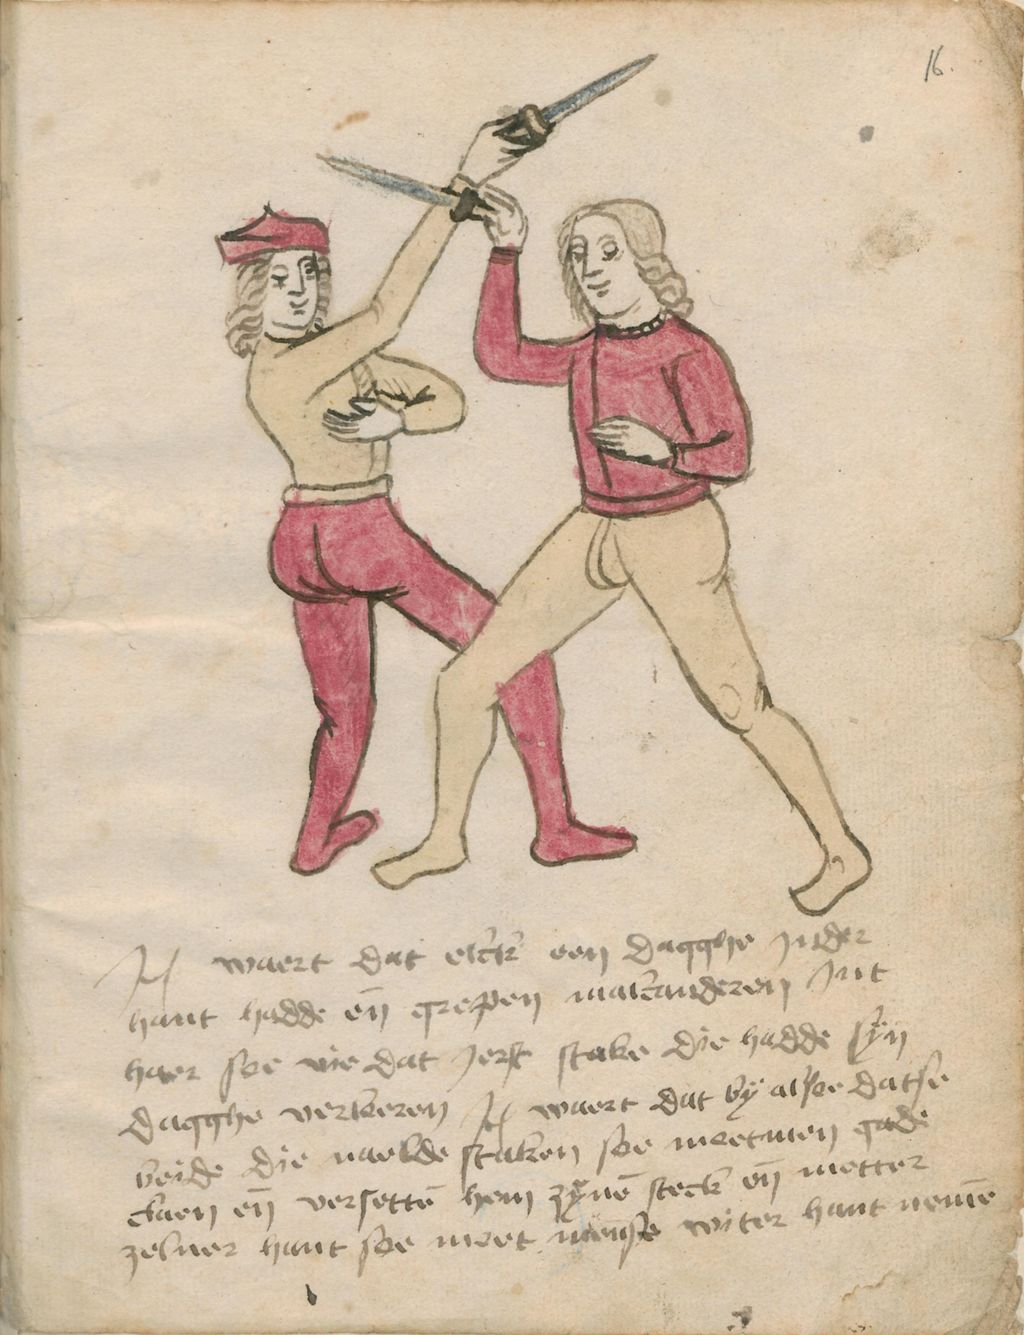 16.
Jtē waert dat elck een dagghe Jnder
hant hadde en̄ grepen malcanderen Jnt
haer soe wie dat Jerst stake die hadde syn
dagghe verloren Jtē waert dat by alsoe datse
beide die naelde staken soe moetmen gade
slaen en̄ versettē hem zynē steck en̄ metter
zeluer hant soe moet wter hant nemē